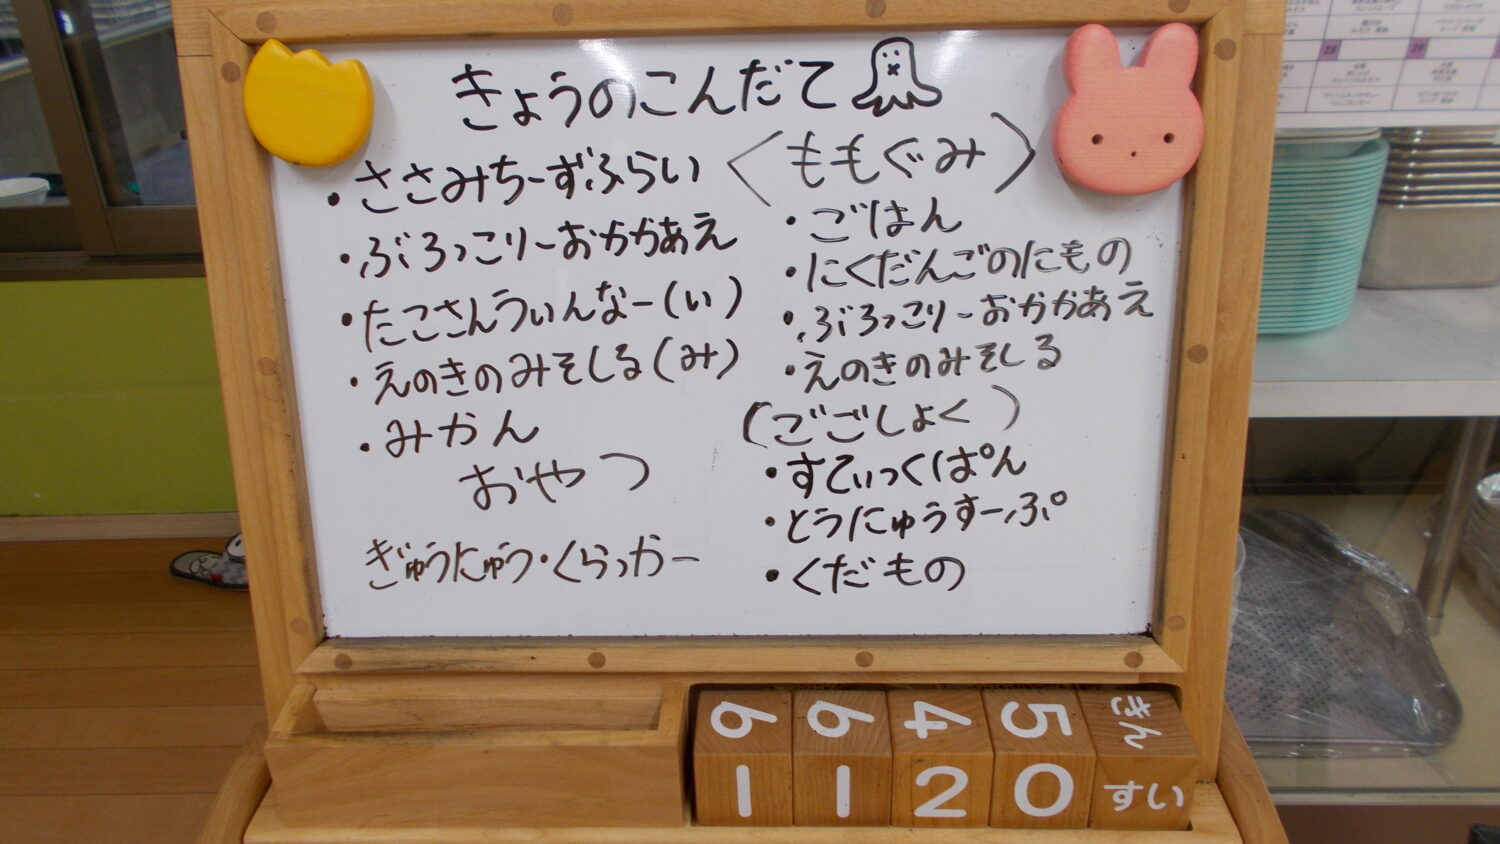 きょうのこんだて
・ささみちーずふらい
・ぶろっこりーおかかあえ
・たこさんういんなー(い)
・えのきのみそしる(み)
・みかん
おやつ
ぎゅうにゅう・くらっかー
〈ももぐみ〉
・ごはん
・にくだんごのにもの
・ぶろっこりーおかかあえ
・えのきのみそしる
(ごごしょく)
・すてぃっくぱん
・とうにゅうすーぷ
・くだもの
6 6 4 5 きん
1 1 2 0 すい